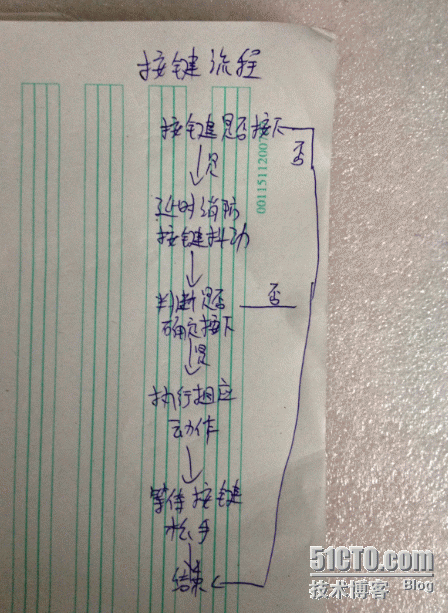 按键流程
按键是否按下
否
是
延时消防
按键抖动
判断是否
否
确定按下
是
执行相应
动作
等待按键
松手
结束
0011511200
51CTO.com
技术博客 Blog